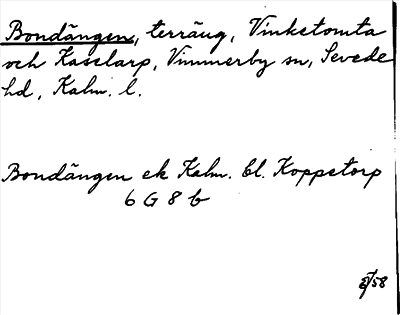 Bondängen, terräng, Vinketomta
och Kaselarp, Vimmerby sn, Sevede
hd, Kalm. l.
Bondängen ek Kalm. bl. Koppetorp
6 G 8 b
/58